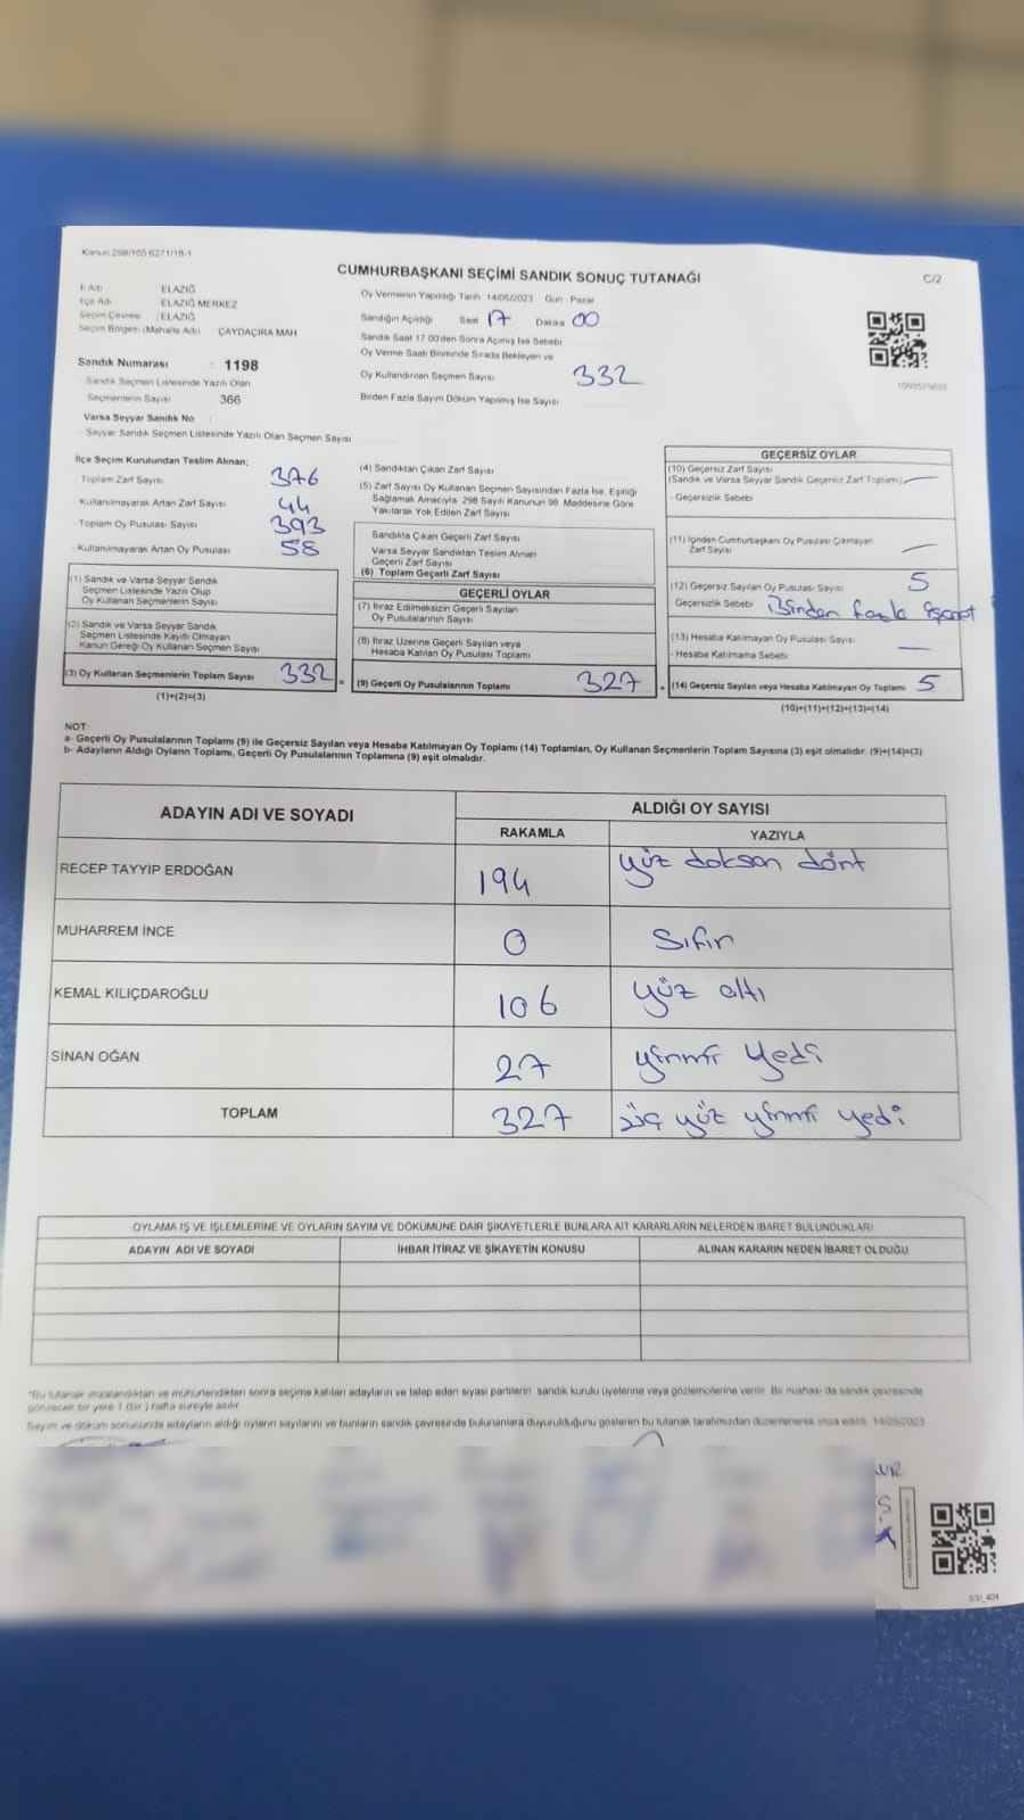 Kanun 298/105 6271/18-1
CUMHURBAŞKANI SEÇİMİ SANDIK SONUÇ TUTANAĞI
C/2
İl Adı : ELAZIĞ
İlçe Adı : ELAZIĞ MERKEZ
Seçim Çevresi : ELAZIĞ
Seçim Bölgesi (Mahalle Adı) : ÇAYDAÇIRA MAH
Oy Vermenin Yapıldığı Tarih 14/05/2023 Gün : Pazar
Sandığın Açıldığı Saat 17 Dakika 00
Sandık Saat 17.00'den Sonra Açılmış İse Sebebi
Oy Verme Saati Bitiminde Sırada Bekleyen ve
Oy Kullandırılan Seçmen Sayısı 332
Birden Fazla Sayım Döküm Yapılmış İse Sayısı
Sandık Numarası : 1198
Sandık Seçmen Listesinde Yazılı Olan
Seçmenlerin Sayısı 366
Varsa Seyyar Sandık No :
Seyyar Sandık Seçmen Listesinde Yazılı Olan Seçmen Sayısı
İlçe Seçim Kurulundan Teslim Alınan;
Toplam Zarf Sayısı 376
Kullanılmayarak Artan Zarf Sayısı 44
- Toplam Oy Pusulası Sayısı 393
- Kullanılmayarak Artan Oy Pusulası 58
(1) Sandık ve Varsa Seyyar Sandık
Seçmen Listesinde Yazılı Olup
Oy Kullanan Seçmenlerin Sayısı
(2) Sandık ve Varsa Seyyar Sandık
Seçmen Listesinde Kayıtlı Olmayan
Kanun Gereği Oy Kullanan Seçmen Sayısı
(3) Oy Kullanan Seçmenlerin Toplam Sayısı 332
(1)+(2)=(3)
(4) Sandıktan Çıkan Zarf Sayısı
(5) Zarf Sayısı Oy Kullanan Seçmen Sayısından Fazla İse, Eşitliği
Sağlamak Amacıyla 298 Sayılı Kanunun 98. Maddesine Göre
Yakılarak Yok Edilen Zarf Sayısı
Sandıkta Çıkan Geçerli Zarf Sayısı
Varsa Seyyar Sandıktan Teslim Alınan
Geçerli Zarf Sayısı
(6) Toplam Geçerli Zarf Sayısı
GEÇERLİ OYLAR
(7) İtiraz Edilmeksizin Geçerli Sayılan
Oy Pusulalarının Sayısı
(8) İtiraz Üzerine Geçerli Sayılan veya
Hesaba Katılan Oy Pusulası Toplamı
(9) Geçerli Oy Pusulalarının Toplamı 327
GEÇERSİZ OYLAR
(10) Geçersiz Zarf Sayısı
(Sandık ve Varsa Seyyar Sandık Geçersiz Zarf Toplamı) —
- Geçersizlik Sebebi
(11) İçinden Cumhurbaşkanı Oy Pusulası Çıkmayan
Zarf Sayısı —
(12) Geçersiz Sayılan Oy Pusulası Sayısı 5
Geçersizlik Sebebi Birden fazla işaret
(13) Hesaba Katılmayan Oy Pusulası Sayısı —
- Hesaba Katılmama Sebebi
(14) Geçersiz Sayılan veya Hesaba Katılmayan Oy Toplamı 5
(10)+(11)+(12)+(13)=(14)
NOT:
a- Geçerli Oy Pusulalarının Toplamı (9) ile Geçersiz Sayılan veya Hesaba Katılmayan Oy Toplamı (14) Toplamları, Oy Kullanan Seçmenlerin Toplam Sayısına (3) eşit olmalıdır. (9)+(14)=(3)
b- Adayların Aldığı Oyların Toplamı, Geçerli Oy Pusulalarının Toplamına (9) eşit olmalıdır.
ADAYIN ADI VE SOYADI
ALDIĞI OY SAYISI
RAKAMLA YAZIYLA
RECEP TAYYIP ERDOĞAN 194 yüz doksan dört
MUHARREM İNCE 0 Sıfır
KEMAL KILIÇDAROĞLU 106 yüz altı
SİNAN OĞAN 27 yirmi yedi
TOPLAM 327 üç yüz yirmi yedi
OYLAMA İŞ VE İŞLEMLERİNE VE OYLARIN SAYIM VE DÖKÜMÜNE DAİR ŞİKAYETLERLE BUNLARA AİT KARARLARIN NELERDEN İBARET BULUNDUKLARI
ADAYIN ADI VE SOYADI İHBAR İTİRAZ VE ŞİKAYETİN KONUSU ALINAN KARARIN NEDEN İBARET OLDUĞU
*Bu tutanak imzalandıktan ve mühürlendikten sonra seçime katılan adayların ve talep eden siyasi partilerin sandık kurulu üyelerine veya gözlemcilerine verilir. Bir nüshası da sandık çevresinde
görünecek bir yere 1 (bir) hafta süreyle asılır.
Sayım ve döküm sonucunda adayların aldığı oyların sayılarını ve bunların sandık çevresinde bulunanlara duyurulduğunu gösteren bu tutanak tarafımızdan düzenlenerek imza edildi. 14/05/2023